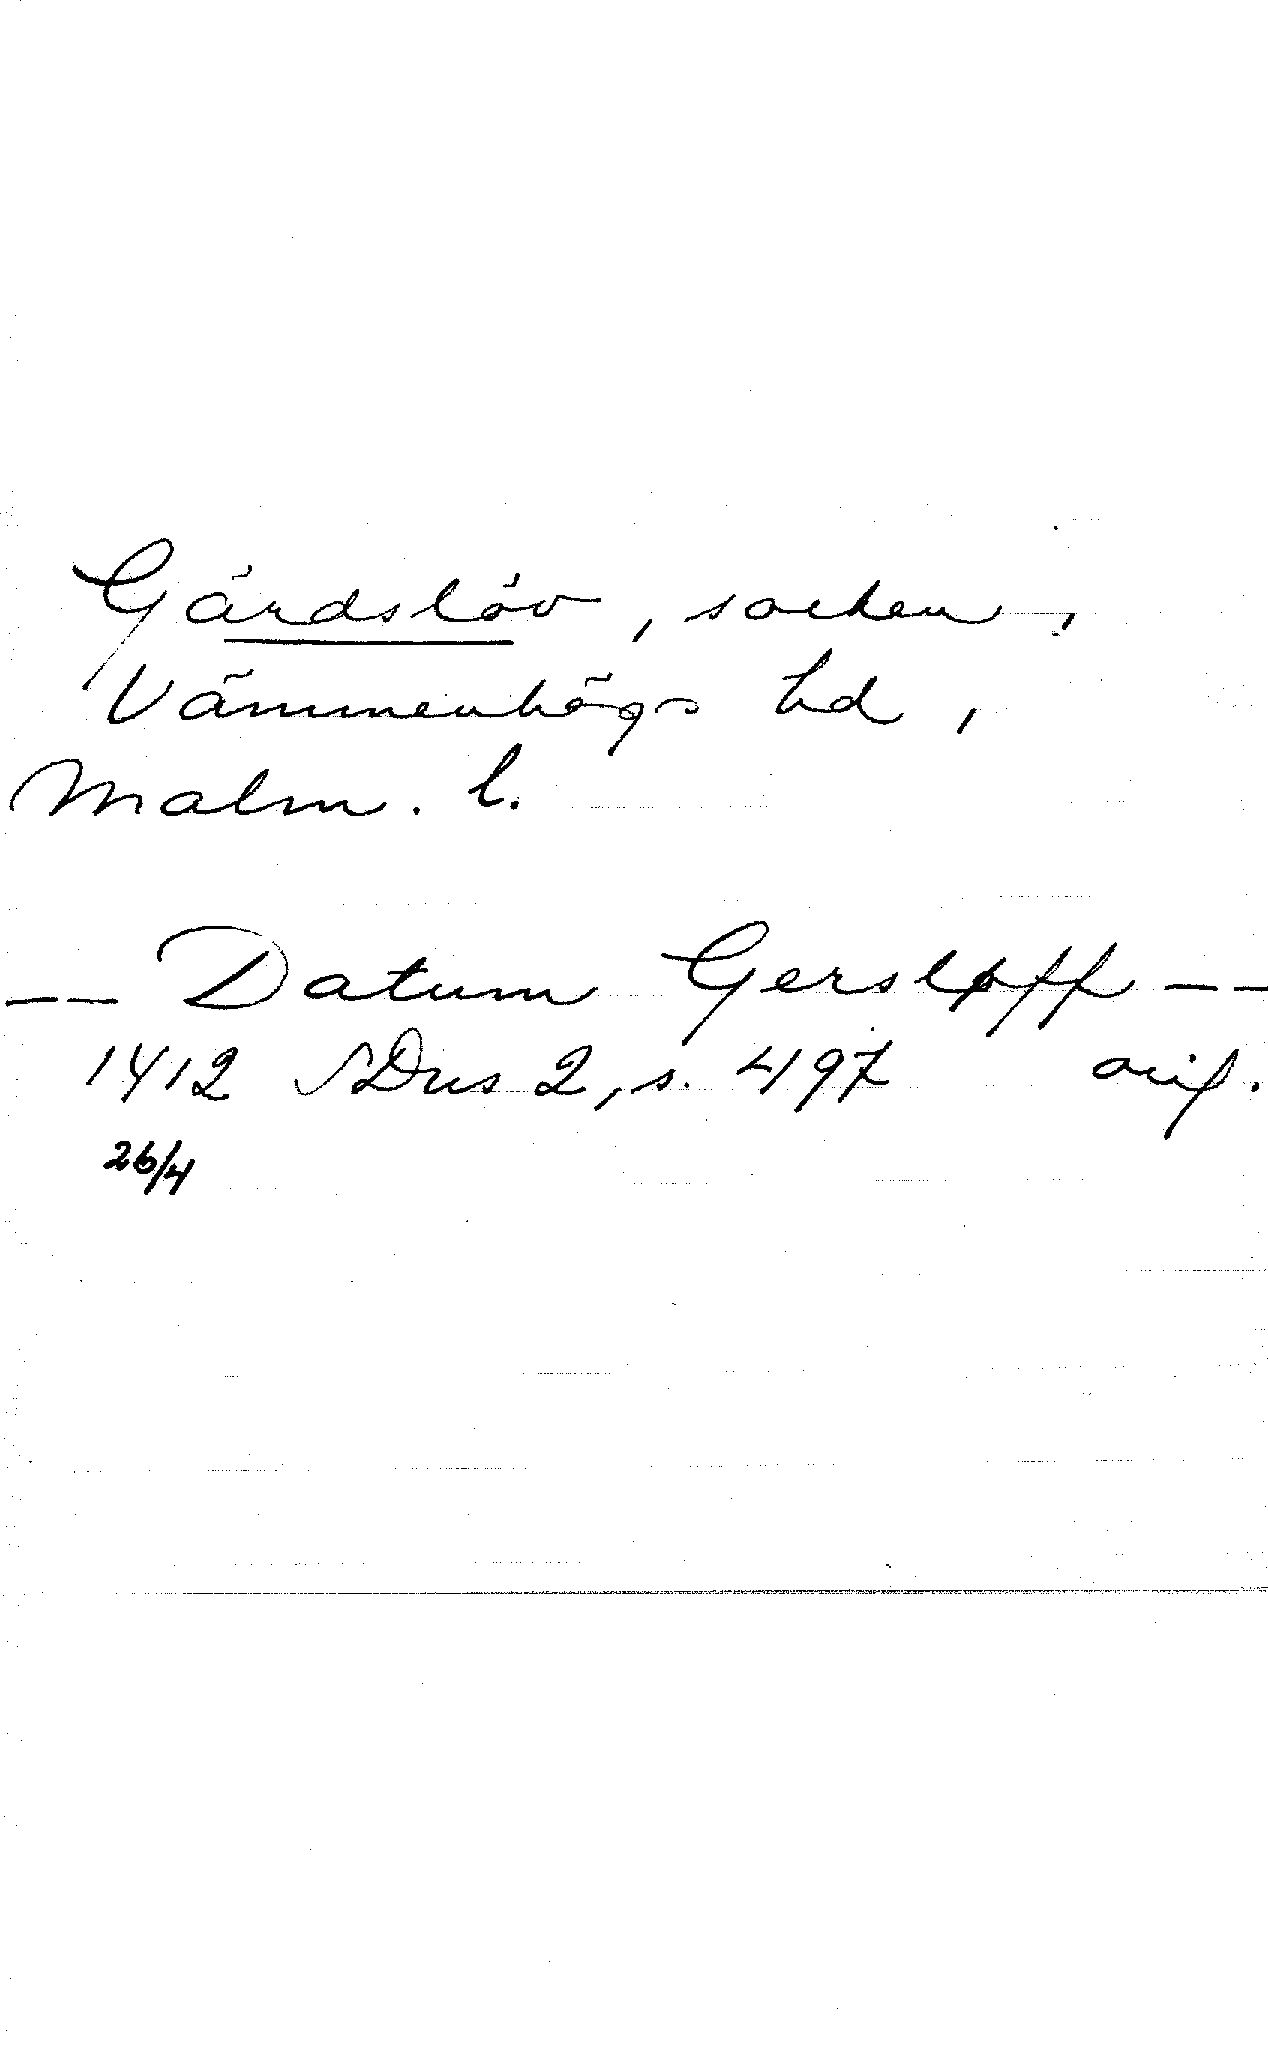 Gärdslöv, socken,
Vämmenhögs hd,
Malm. l.
-- Datum Gersløff --
1412 SDns 2, s. 497 orig.
26/4